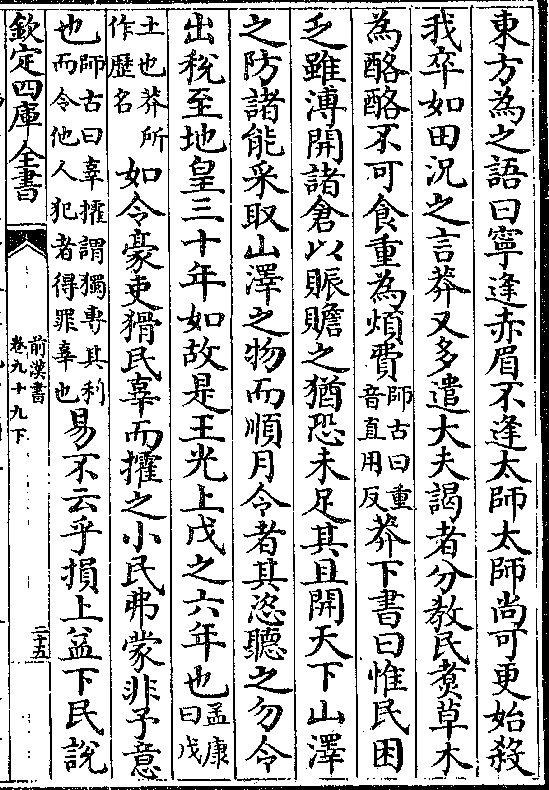 東方為之語曰寧逢赤眉不逢太師太師尚可更始殺
我卒如田況之言莽又多遣大夫謁者分教民煑草木
為酪酪不可食重為煩費師古曰重音直用反莽下書曰惟民困
乏雖溥開諸倉以賑贍之猶恐未足其且開天下山澤
之防諸能采取山澤之物而順月令者其恣聽之勿令
出稅至地皇三十年如故是王光上戊之六年也孟康曰戊
土也莽所作歷名如令豪吏猾民辜而㩴之小民弗蒙非予意
也師古曰辜㩴謂獨專其利而令他人犯者得罪辜也易不云乎損上益下民說
欽定四庫全書
前漢書
卷九十九下
二十五